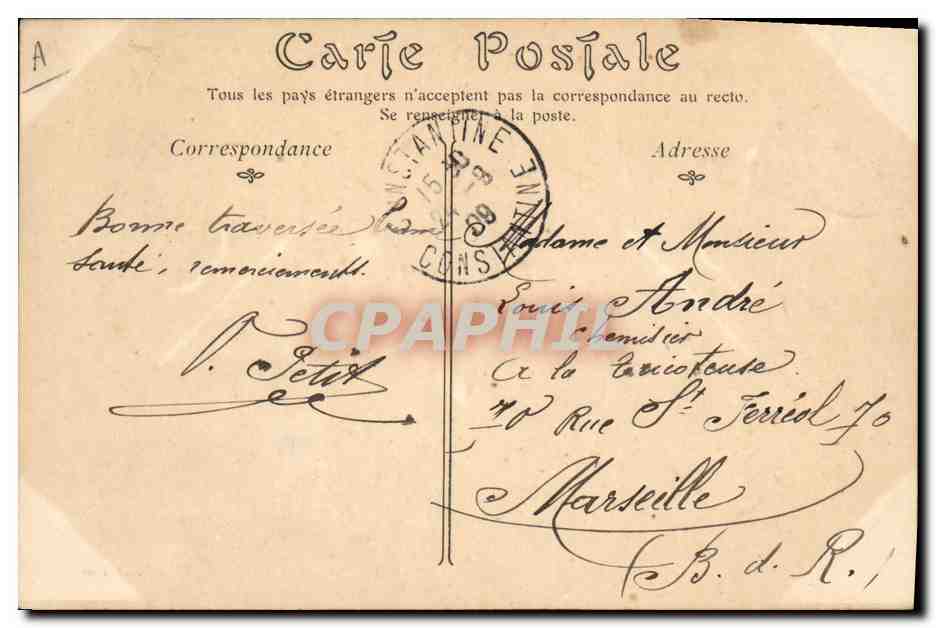 A
Carte Postale
Tous les pays étrangers n'acceptent pas la correspondance au recto.
Se renseigner à la poste.
Correspondance
Adresse
CONSTANTINE
15
8
09
CONSTANTINE
Bonne traversée bonne
santé, remerciements.
V. Petit
Madame et Monsieur
Louis André
chemisier
A la tricoteuse
70 Rue St Ferréol 70
Marseille
B. d. R.
CPAPHIL